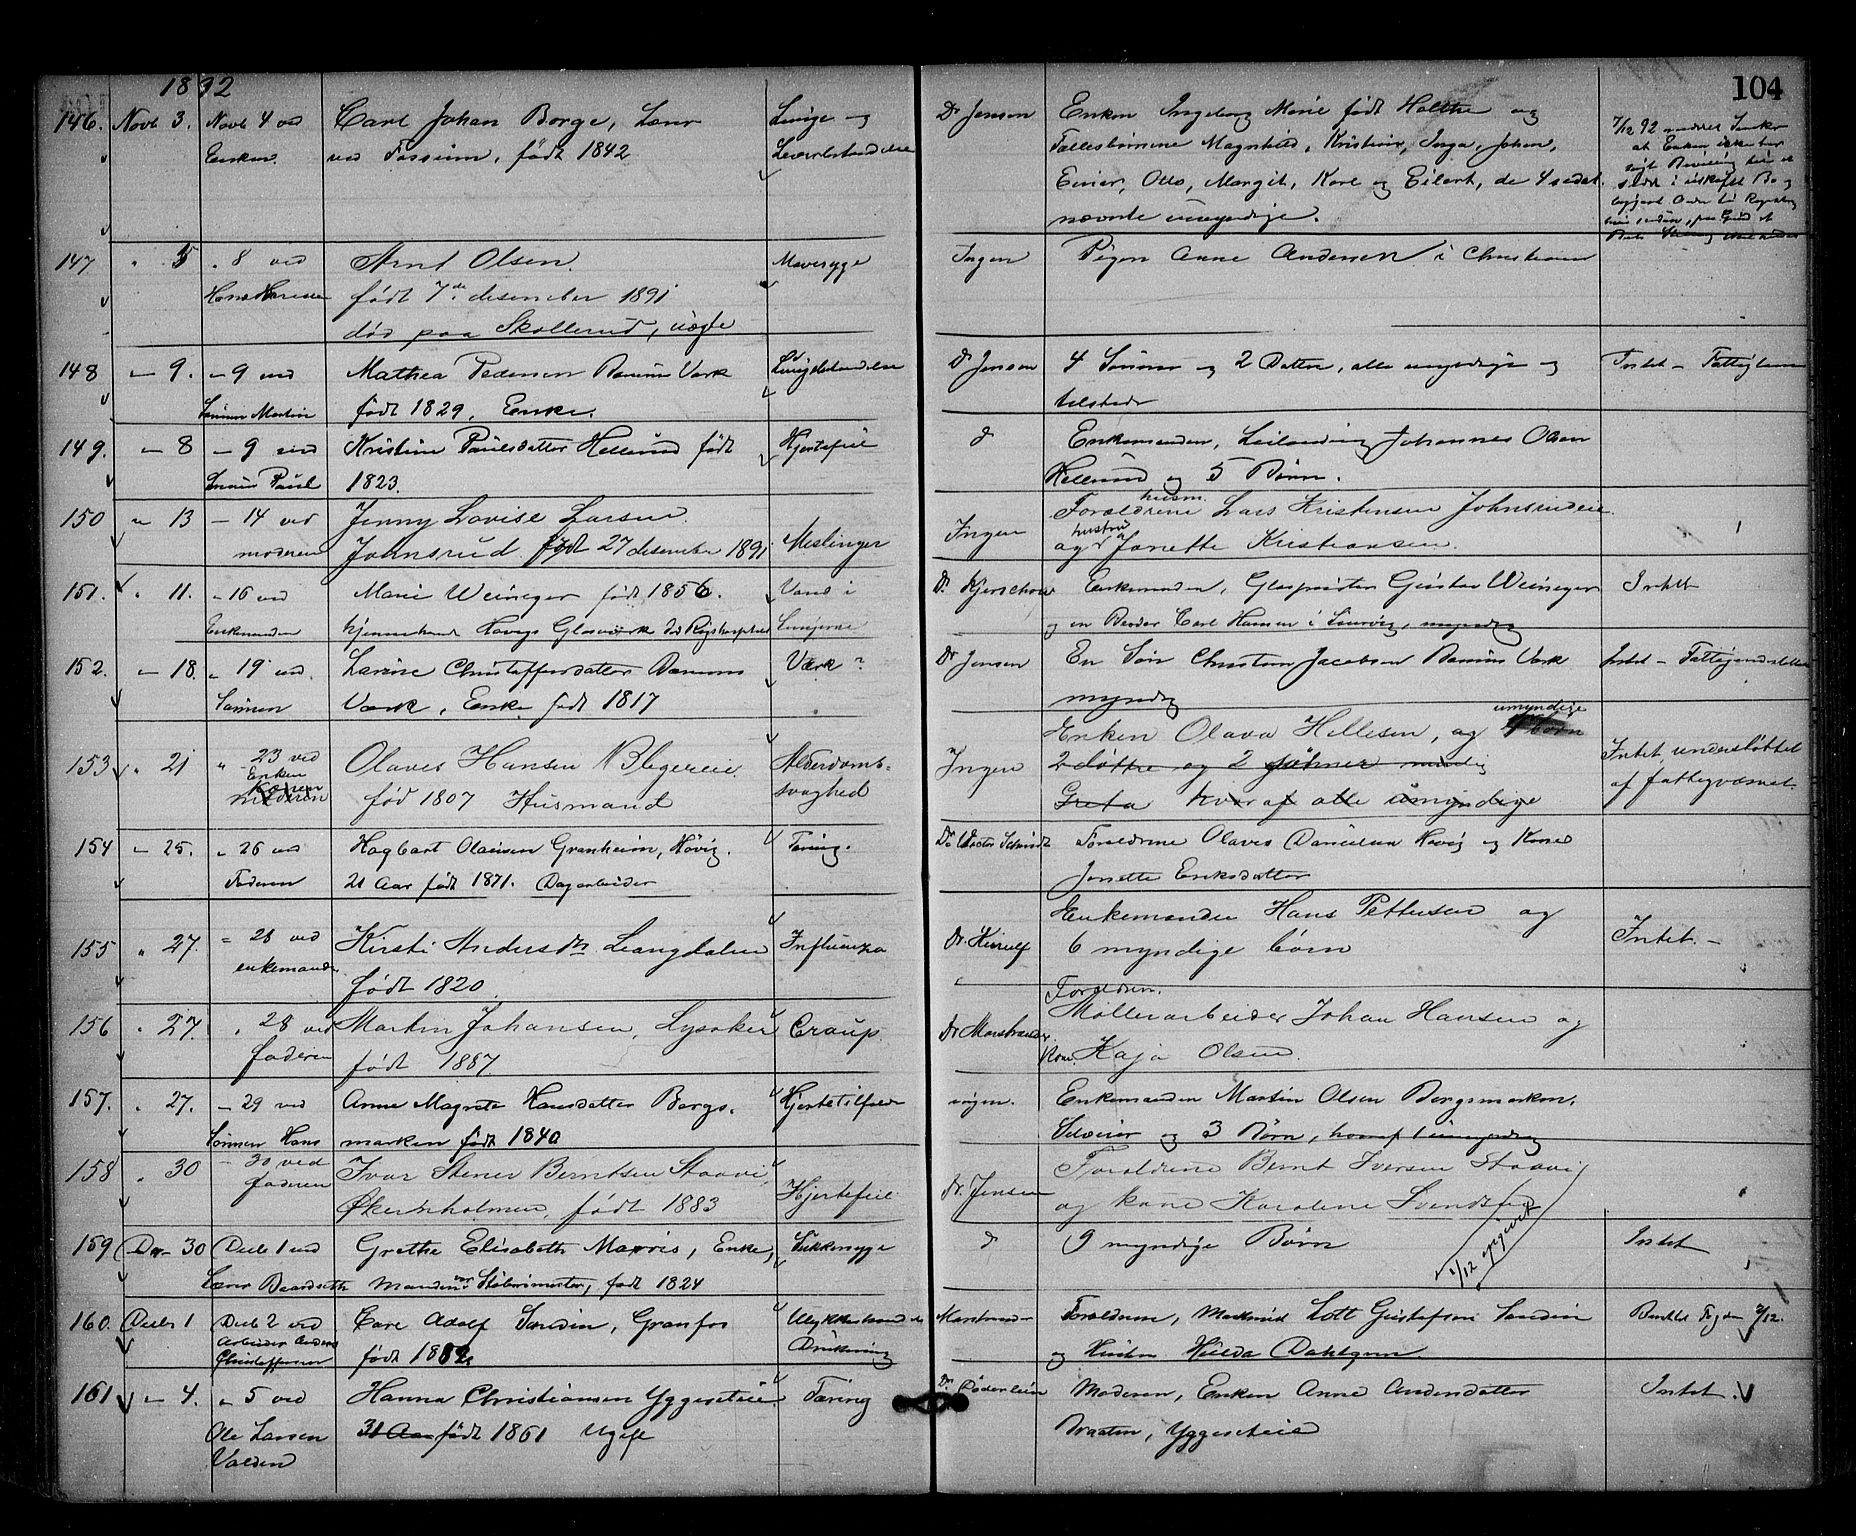 1892
104
146. Novb 3. Novb 4 ved Carl Johan Borge, Lærer Lunge og Dr Jensen Enken Ingeborg Marie født Holthe og
Enken. ved Fossum, født 1842 Leverbetændelse Fællesbörnene Magnhild, Kristine, Inga, Johan,
Einar, Otto, Margit, Karl og Eilert, de 4 sidst
nævnte umyndige.
7/12 92 Enken
at Enken ikke har
147 " 5 " 8 ved Arnt Olsen. Mavesyge Ingen Pigen Anne Andersen i Christiania
Hans Hansen født 7de desember 1891
død paa Skollerud, uægte
148 " 9. " 9 ved Mathea Pedersen Bærums Værk Lungebetændelse Dr Jensen 4 Sönner og 2 Døttre, alle myndige og Intet - Fattiglem
Sønnen Martin født 1829, Enke. tilstede
149. " 8 " 9 ved Kristine Paulsdatter Hellerud født Hjertefeil d Enkemanden, Leilending Johannes Olsen
Sønnen Paul 1823. Hellerud og 5 Børn.
150 " 13 " 14 ved Jenny Lovise Larsen Meslinger Ingen Forældrene husm. Lars Kristensen Johnsrudeie
moderen Johnsrud født 27 desember 1891 og hustru Janette Kristiansen.
151. " 11. " 16 ved Marie Weineger født 1856. Vand i Dr. Kjerschow Enkemanden, Glaspuster Gustav Weineger Intet
Enkemanden hjemmehørende Høviks Glasværk død Rigshospitalet Lungerne og en Broder Carl Hansen i Laurvig, myndig
152. " 18. " 19 ved Lovise Christoffersdatter Bærums Værk ? Dr Jensen En Søn Christian Jacobsen Bærums Værk Intet - Fattigunderstøttet
Sønnen Værk, Enke født 1817 myndig
153 " 21 " 23 ved Olaves Hansen Blegereie Alderdoms- Ingen Enken Olava Hellesen, og 4 umyndige børn Intet, understøttet
Enken svaghed 2 døttre og 2 søhner myndig af fattigvæsnet.
moderen fød 1807 Husmand Greta hvor af alle umyndige
154 " 25. " 26 ved Hagbart Olausen Granheim, Høvig. Tæring. Dr. Schmidt Forældrene Olaves Danielsen Høvig og Kone
Faderen 21 Aar født 1871. Dagarbeider Janette Eriksdatter
155 " 27. " 28 ved Kirsti Andersdtr Leangdalen Influenza Dr. Kierulf Enkemanden Hans Pettersen og Intet. -
enkemanden født 1820 6 myndige börn
156 " 27. " 28 ved Martin Johansen, Lysaker Croup Dr. Marstrander Forældren. Møllerarbeider Johan Hansen og
faderen født 1887 Kone Kaja Olsen.
157. " 27. " 29 ved Anne Magrete Hansdatter Bergs- Hjertetilfælde ingen. Enkemanden Martin Olsen Bergsmarken,
Sønnen Hans marken født 1840 Selveier og 3 Børn, hvoraf 1 umyndig
158 " 30 " 30 ved Ivar Stener Berntsen Staavi, Hjertefeil Dr. Jensen Forældrene Bernt Iversen Staavi
faderen Økernholmen, født 1883 og kone Karoline Svendsen
159 30 Decb 1 ved Grethe Elisabeth Morris, Enke, Sukkersyge d 9 myndige Børn 1/12 opgivet Intet
Lærer Baardseth Manden var Støbermester, født 1824
160. Decb 1 Decb 2 ved Carl Adolf Sundin, Granfos Ulykkeshændelse Marstrander Forældrene, Maskinist Lott Gustafson Sundin 2/12.
Arbeider Anders født 1882 Drukning og Hustru Hilda Dahlgren.
Christoffersen
161 " 4. " 5 ved Hanna Christiansen Yggeseteie Tæring Dr. Døderlein Moderen, Enken Anne Andersdatter Intet.
Ole Larsen 31 Aar født 1861 Ugift Braaten, Yggeseteie
Valden